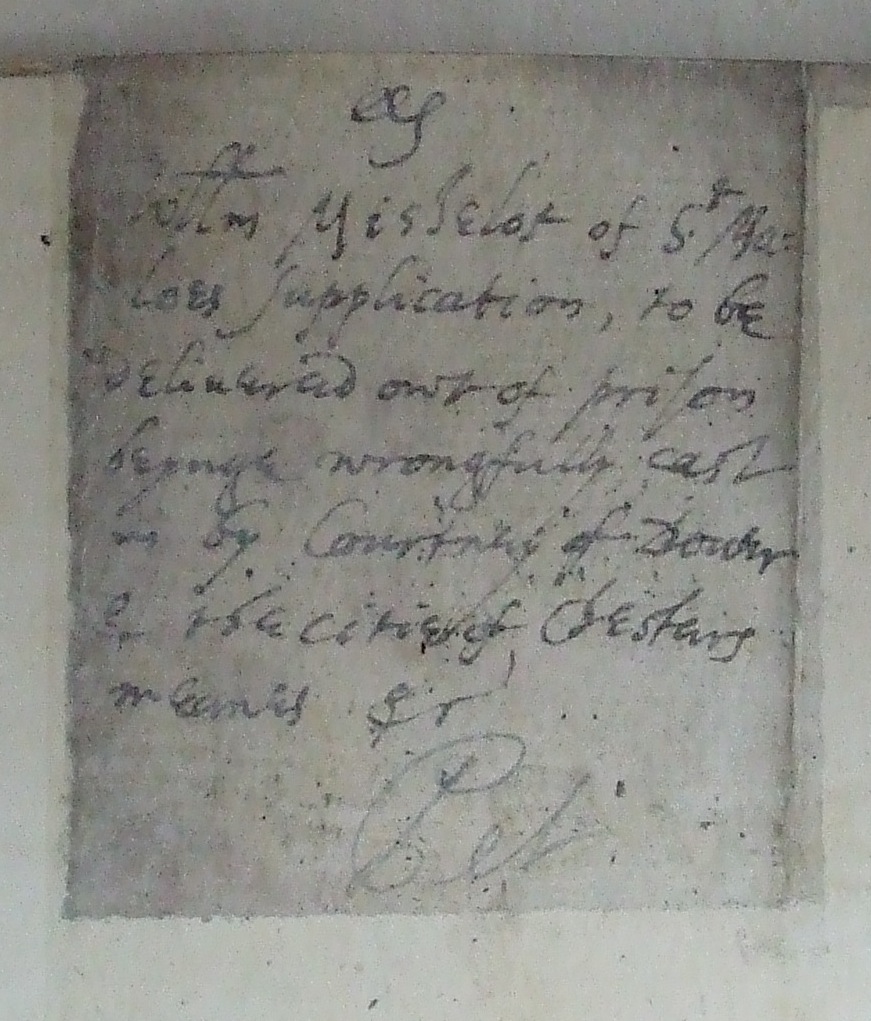 Willm Misselot of St Ma=
loes supplication, to be
delivered owt of prison
beynge wrongfully cast
in by Courtney of Dover
& the citie of Chesters
meanes &c
Pet